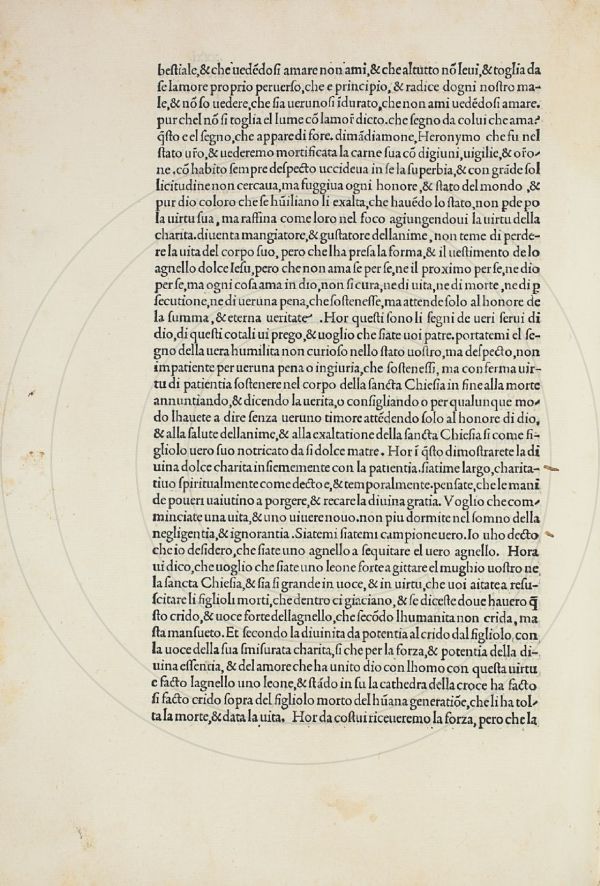 bestiale, & che uedẽdosi amare non ami, & che al tutto nõ leui, & toglia da
se lamore proprio peruerso, che e principio, & radice dogni nostro ma-
le, & nõ so uedere, che sia ueruno si ĩdurato, che non ami uedẽdosi amare.
pur chel nõ si toglia el lume cõ lamor̃ dicto. che segno da colui che ama?
q̃sto e el segno, che appare di fore. dimãdiamone, Heronymo che fu nel
stato ur̃o, & uederemo mortificata la carne sua cõ digiuni, uigilie, & or̃o-
ne. cõ habito sempre despecto uccideua in se la superbia, & con grãde sol
licitudine non cercaua, ma fuggiua ogni honore, & stato del mondo , &
pur dio coloro che se hũiliano li exalta, che hauẽdo lo stato, non ꝑde po
la uirtu sua, ma raffina come loro nel foco agiungendoui la uirtu della
charita. diuenta mangiatore, & gustatore dellanime, non teme di perde-
re la uita del corpo suo, pero che lha presa la forma, & il uestimento de lo
agnello dolce Iesu, pero che non ama se per se, ne il proximo per se, ne dio
per se, ma ogni cosa ama in dio, non si cura, ne di uita, ne di morte, ne di ꝑ
secutione, ne di ueruna pena, che sostenesse, ma attende solo al honore de
la summa, & eterna ueritate . Hor questi sono li segni de ueri serui di
dio, di questi cotali ui prego, & uoglio che siate uoi patre. portatemi el se-
gno della uera humilita non curioso nello stato uostro, ma despecto, non
impatiente per ueruna pena o ingiuria, che sostenessi, ma con ferma uir-
tu di patientia sostenere nel corpo della sancta Chiesia in fine alla morte
annuntiando, & dicendo la uerita, o consigliando o per qualunque mo-
do lhauete a dire senza ueruno timore attẽdendo solo al honore di dio,
& alla salute dellanime, & alla exaltatione della sancta Chiesia si come fi-
gliolo uero suo notricato da si dolce matre. Hor ĩ q̃sto dimostrarete la di
uina dolce charita insiememente con la patientia. siatime largo, charita-
tiuo spiritualmente come decto e, & temporalmente. pensate, che le mani
de poueri uaiutino a porgere, & recare la diuina gratia. Voglio che com-
minciate una uita, & uno uiuere nouo. non piu dormite nel somno della
negligentia, & ignorantia. Siatemi siatemi campione uero. Io uho decto
che io desidero, che siate uno agnello a sequitare el uero agnello. Hora
ui dico, che uoglio che siate uno leone forte a gittare el mughio uostro ne
la sancta Chiesia, & sia si grande in uoce, & in uirtu, che uoi aitate a resu-
scitare li figlioli morti, che dentro ci giaciano, & se diceste doue hauero q̃
sto crido, & uoce forte dellagnello, che secõdo lhumanita non crida, ma
sta mansueto. Et secondo la diuinita da potentia al crido dal figliolo con
la uoce della sua smisurata charita, si che per la forza, & potentia della di-
uina essentia, & del amore che ha unito dio con lhomo con questa uirtu
e facto lagnello uno leone, & stãdo in su la cathedra della croce ha facto
si facto crido sopra del figliolo morto del hũana generatiõe, che li ha tol-
ta la morte, & data la uita. Hor da costui riceueremo la forza, pero che la